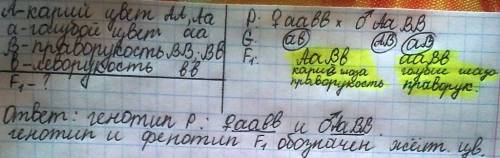 А-карий цвет АА, Аа
а-голубой цвет аа
В-праворукость ВВ; Вв
в-леворукость вв
F₁ - ?
Р: ♀ аавв × ♂ АаВВ
G: ав АВ аВ
F₁: АаВв ааВв
карие глаза голубые глаза
праворукость праворук.
Ответ: генотип Р: ♀аавв и ♂АаВВ.
генотип и фенотип F₁ обозначен жёлт. цв.